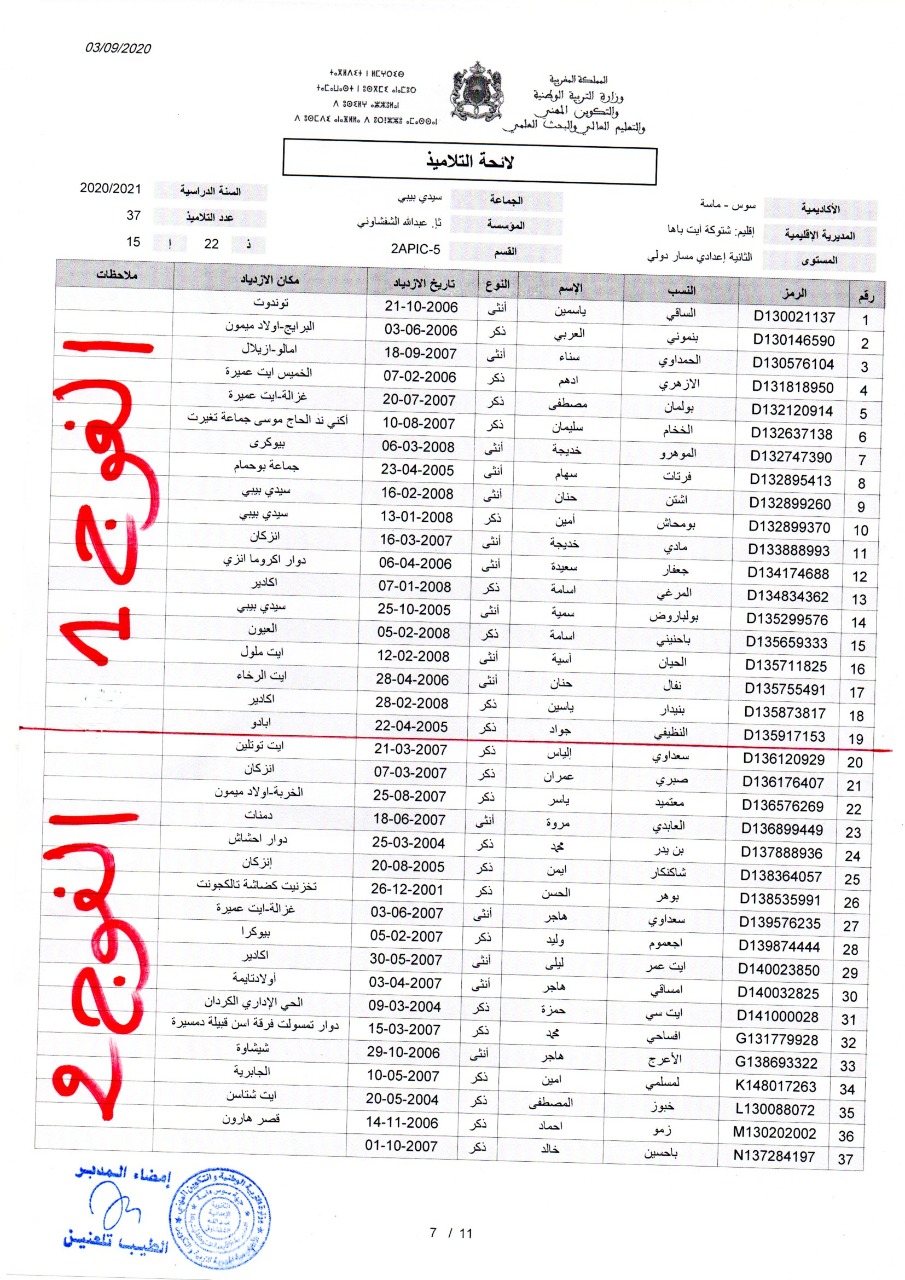 03/09/2020
ⵜⴰⴳⵍⴷⵉⵜ ⵏ ⵍⵎⵖⵔⵉⴱ
المملكة المغربية
وزارة التربية الوطنية
والتكوين المهني
والتعليم العالي والبحث العلمي
لائحة التلاميذ
الأكاديمية سوس - ماسة الجماعة سيدي بيبي السنة الدراسية 2020/2021
المديرية الإقليمية إقليم: شتوكة آيت باها المؤسسة ثا. عبدالله الشفشاوني عدد التلاميذ 37
المستوى الثانية إعدادي مسار دولي القسم 2APIC-5 ذ 22 إ 15
رقم الرمز النسب الإسم النوع تاريخ الازدياد مكان الازدياد ملاحظات
1 D130021137 الساقي ياسمين أنثى 21-10-2006 توندوت
2 D130146590 بنموني العربي ذكر 03-06-2006 البرايج-اولاد ميمون
3 D130576104 الحمداوي سناء أنثى 18-09-2007 امالو-ازيلال
4 D131818950 الازهري ادهم ذكر 07-02-2006 الخميس ايت عميرة
5 D132120914 بولمان مصطفى ذكر 20-07-2007 غزالة-ايت عميرة
6 D132637138 الخخام سليمان ذكر 10-08-2007 أكني ند الحاج موسى جماعة تغيرت
7 D132747390 الموهرو خديجة أنثى 06-03-2008 بيوكرى
8 D132895413 فرتات سهام أنثى 23-04-2005 جماعة بوحمام
9 D132899260 اشتن حنان أنثى 16-02-2008 سيدي بيبي
10 D132899370 بومحاش أمين ذكر 13-01-2008 سيدي بيبي
11 D133888993 مادي خديجة أنثى 16-03-2007 انزكان
12 D134174688 جعفار سعيدة أنثى 06-04-2006 دوار اكروما انزي
13 D134834362 المرغي اسامة ذكر 07-01-2008 اكادير
14 D135299576 بولباروض سمية أنثى 25-10-2005 سيدي بيبي
15 D135659333 باحنيني اسامة ذكر 05-02-2008 العيون
16 D135711825 الحيان أسية أنثى 12-02-2008 ايت ملول
17 D135755491 نفال حنان أنثى 28-04-2006 ايت الرخاء
18 D135873817 بنيدار ياسين ذكر 28-02-2008 اكادير
19 D135917153 النظيفي جواد ذكر 22-04-2005 ابادو
الفوج 1
20 D136120929 سعداوي إلياس ذكر 21-03-2007 ايت توتلين
21 D136176407 صبري عمران ذكر 07-03-2007 انزكان
22 D136576269 معتميد ياسر ذكر 25-08-2007 الخربة-اولاد ميمون
23 D136899449 العابدي مروة أنثى 18-06-2007 دمنات
24 D137888936 بن يدر محمد ذكر 25-03-2004 دوار احشاش
25 D138364057 شاكنكار ايمن ذكر 20-08-2005 إنزكان
26 D138535991 بوهر الحسن ذكر 26-12-2001 تخزنيت كضاشة تالكجونت
27 D139576235 سعداوي هاجر أنثى 03-06-2007 غزالة-ايت عميرة
28 D139874444 اجعموم وليد ذكر 05-02-2007 بيوكرا
29 D140023850 ايت عمر ليلى أنثى 30-05-2007 اكادير
30 D140032825 امساقي هاجر أنثى 03-04-2007 أولادتايمة
31 D141000028 ايت سي حمزة ذكر 09-03-2004 الحي الإداري الكردان
32 G131779928 افساحي محمد ذكر 15-03-2007 دوار تمسولت فرقة اسن قبيلة دمسيرة
33 G138693322 الأعرج هاجر أنثى 29-10-2006 شيشاوة
34 K148017263 لمسلمي امين ذكر 10-05-2007 الجابرية
35 L130088072 خيوز المصطفى ذكر 20-05-2004 ايت شتاسن
36 M130202002 زمو احماد ذكر 14-11-2006 قصر هارون
37 N137284197 باحسين خالد ذكر 01-10-2007
الفوج 2
إمضاء المدير
الطيب تلعنين
7 / 11